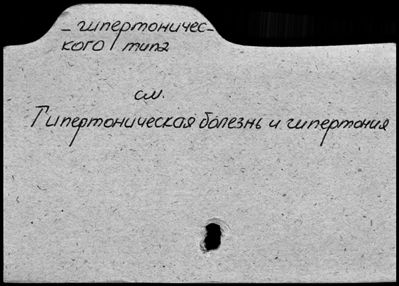 – гипертоничес-
кого типа
см.
Гипертоническая болезнь и гипертония